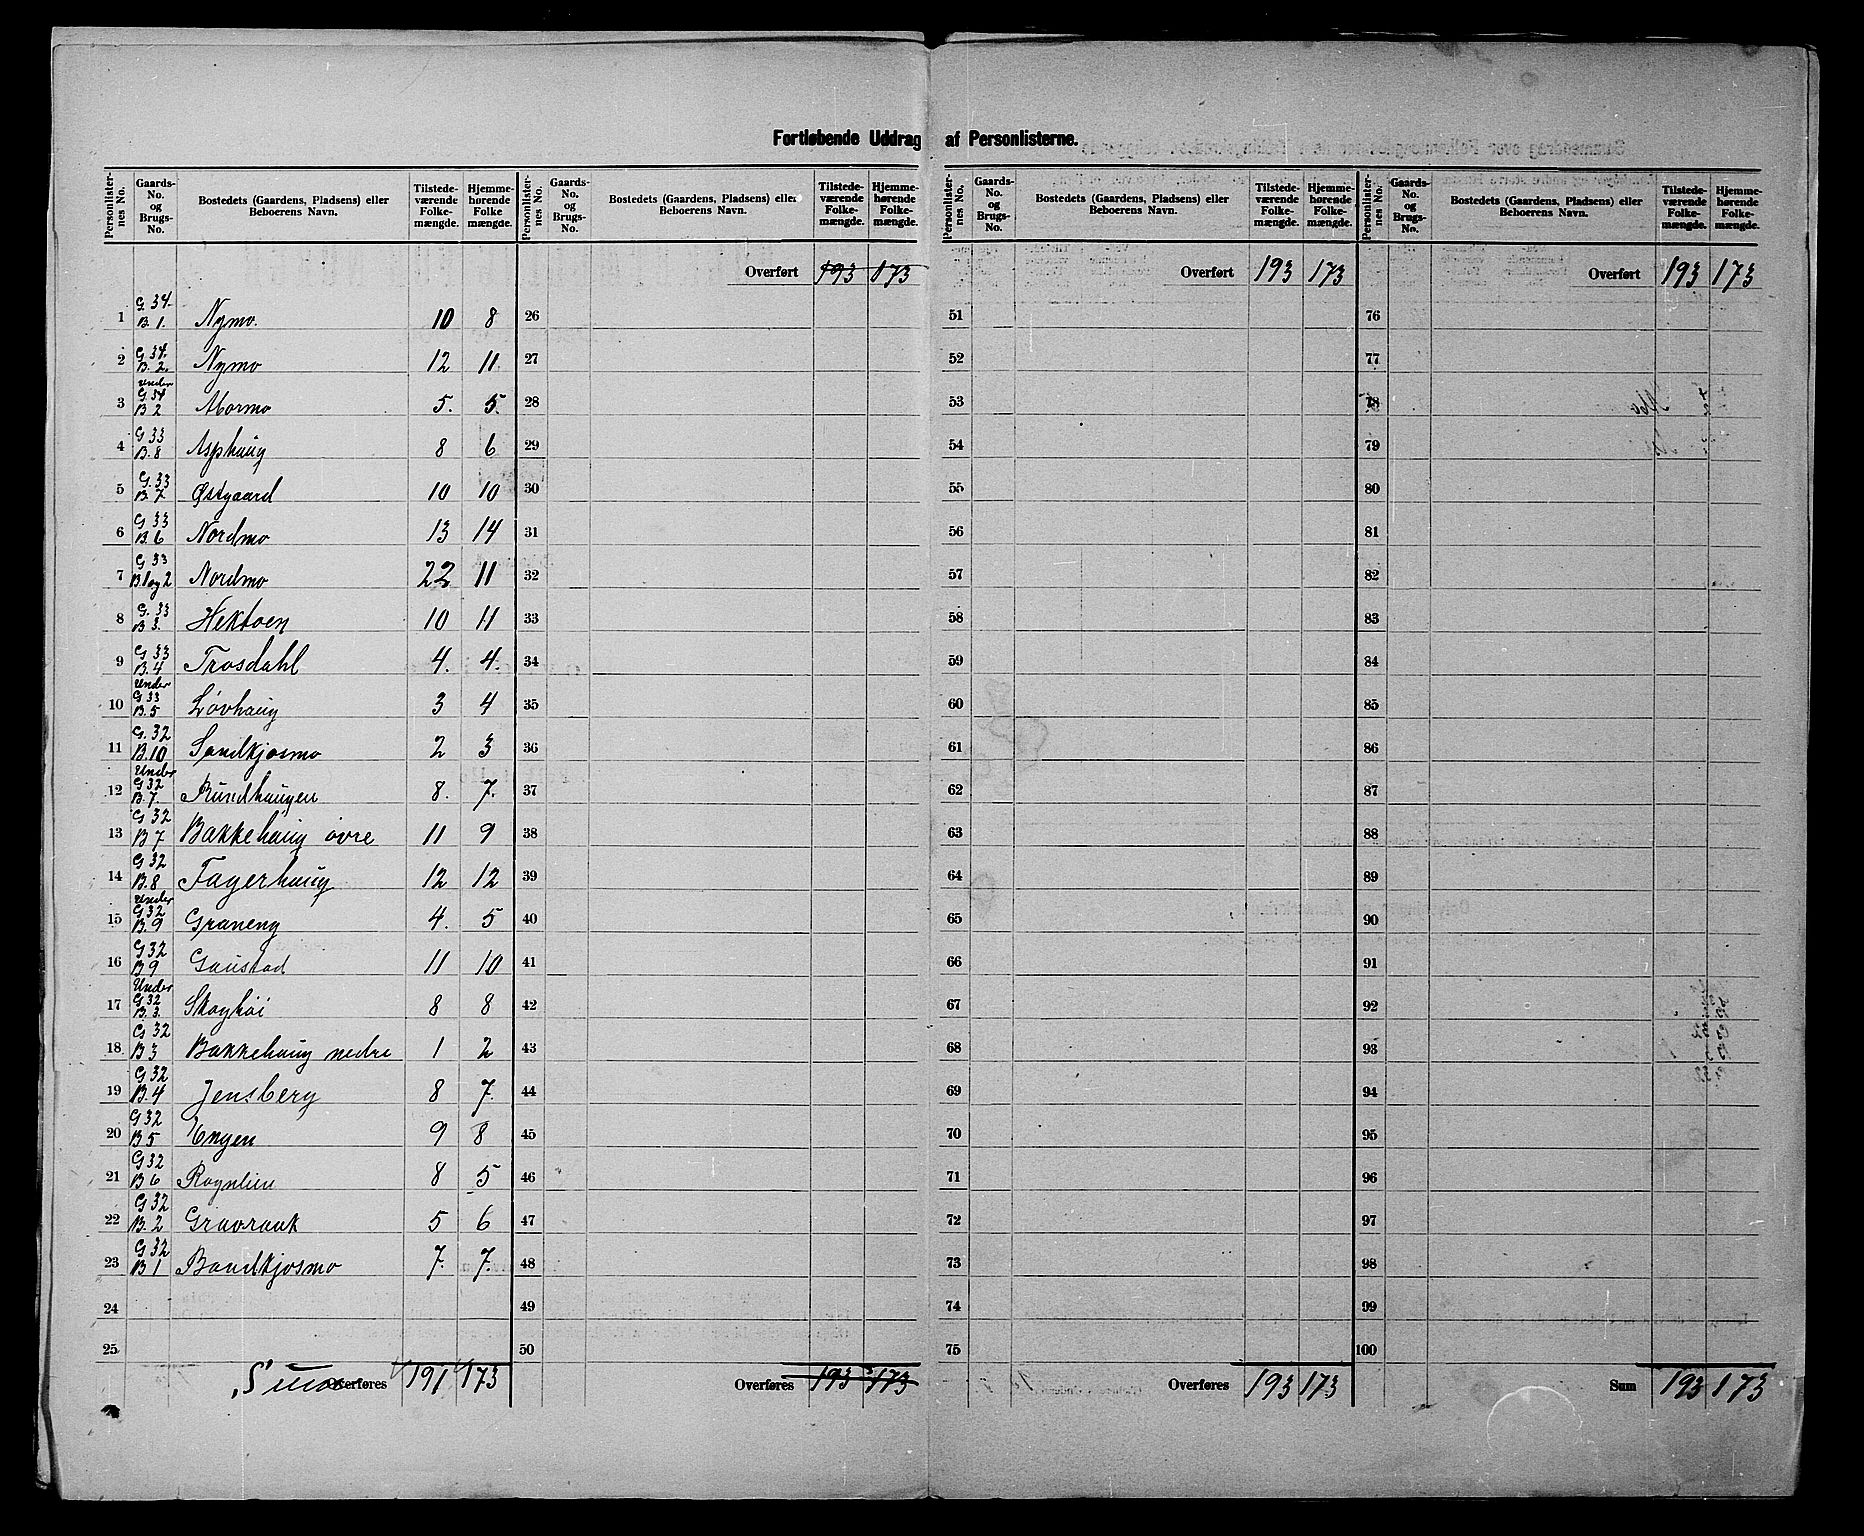 Fortløbende Uddrag af Personlisterne.
Personlister-nes No. | Gaards-No. og Brugs-No. | Bostedets (Gaardens, Pladsens) eller Beboerens Navn. | Tilstede-værende Folke-mængde. | Hjemme-hørende Folke mængde.
1 | G. 34. B. 1. | Nymo. | 10 | 8
2 | G. 34. B. 2. | Nymo | 12 | 11
3 | Under G. 34 B 2 | Mormo | 5. | 5.
4 | G 33 B. 8 | Asphaug | 8 | 6
5 | G. 33 B. 7 | Østgaard | 10 | 10
6 | G 33 B. 6 | Nordmo | 13 | 14
7 | G 33 B. 1 og 2 | Nordmo | 22 | 11
8 | G. 33 B 3. | Hektoen | 10 | 11
9 | G 33 B. 4 | Trosdahl | 4. | 4.
10 | Under G 33 B. 5 | Løvhaug | 3 | 4
11 | G. 32 B. 10 | Sandkjosmo | 2 | 3
12 | Under G 32 B. 7. | Rundhaugen | 8. | 7.
13 | G 32 B 7 | Bakkehaug øvre | 11 | 9
14 | G 32 B. 8 | Fagerhaug | 12 | 12
15 | Under G 32 B. 9 | Graneng | 4. | 5
16 | G 32 B 9 | Gaustad | 11 | 10
17 | Under G 32 B. 3. | Skoghøi | 8 | 8
18 | G 32 B 3 | Bakkehaug nedre | 1 | 2
19 | G 32 B. 4 | Jensberg | 8 | 7.
20 | G 32 B 5 | Engen | 9 | 8
21 | G 32 B 6 | Rognlien | 8 | 5
22 | G 32 B. 2 | Gravrauk | 5 | 6
23 | G 32 B 1 | Bandkjosmo | 7. | 7.
24
25
Suma Overføres | 191 | 173
Personlister-nes No. | Gaards-No. og Brugs-No. | Bostedets (Gaardens, Pladsens) eller Beboerens Navn. | Tilstede-værende Folke-mængde. | Hjemme-hørende Folke-mængde.
Overført | 193 | 173
26
27
28
29
30
31
32
33
34
35
36
37
38
39
40
41
42
43
44
45
46
47
48
49
50
Overføres | 193 | 173
Personlister-nes No. | Gaards-No. og Brugs-No. | Bostedets (Gaardens, Pladsens) eller Beboerens Navn. | Tilstede-værende Folke-mængde. | Hjemme-hørende Folke-mængde.
Overført | 193 | 173
51
52
53
54
55
56
57
58
59
60
61
62
63
64
65
66
67
68
69
70
71
72
73
74
75
Overføres | 193 | 173
Personlister-nes No. | Gaards-No. og Brugs-No. | Bostedets (Gaardens, Pladsens) eller Beboerens Navn. | Tilstede-værende Folke-mængde. | Hjemme-hørende Folke-mængde.
Overført | 193 | 173
76
77
78
79
80
81
82
83
84
85
86
87
88
89
90
91
92
93
94
95
96
97
98
99
100
Sum | 193 | 173